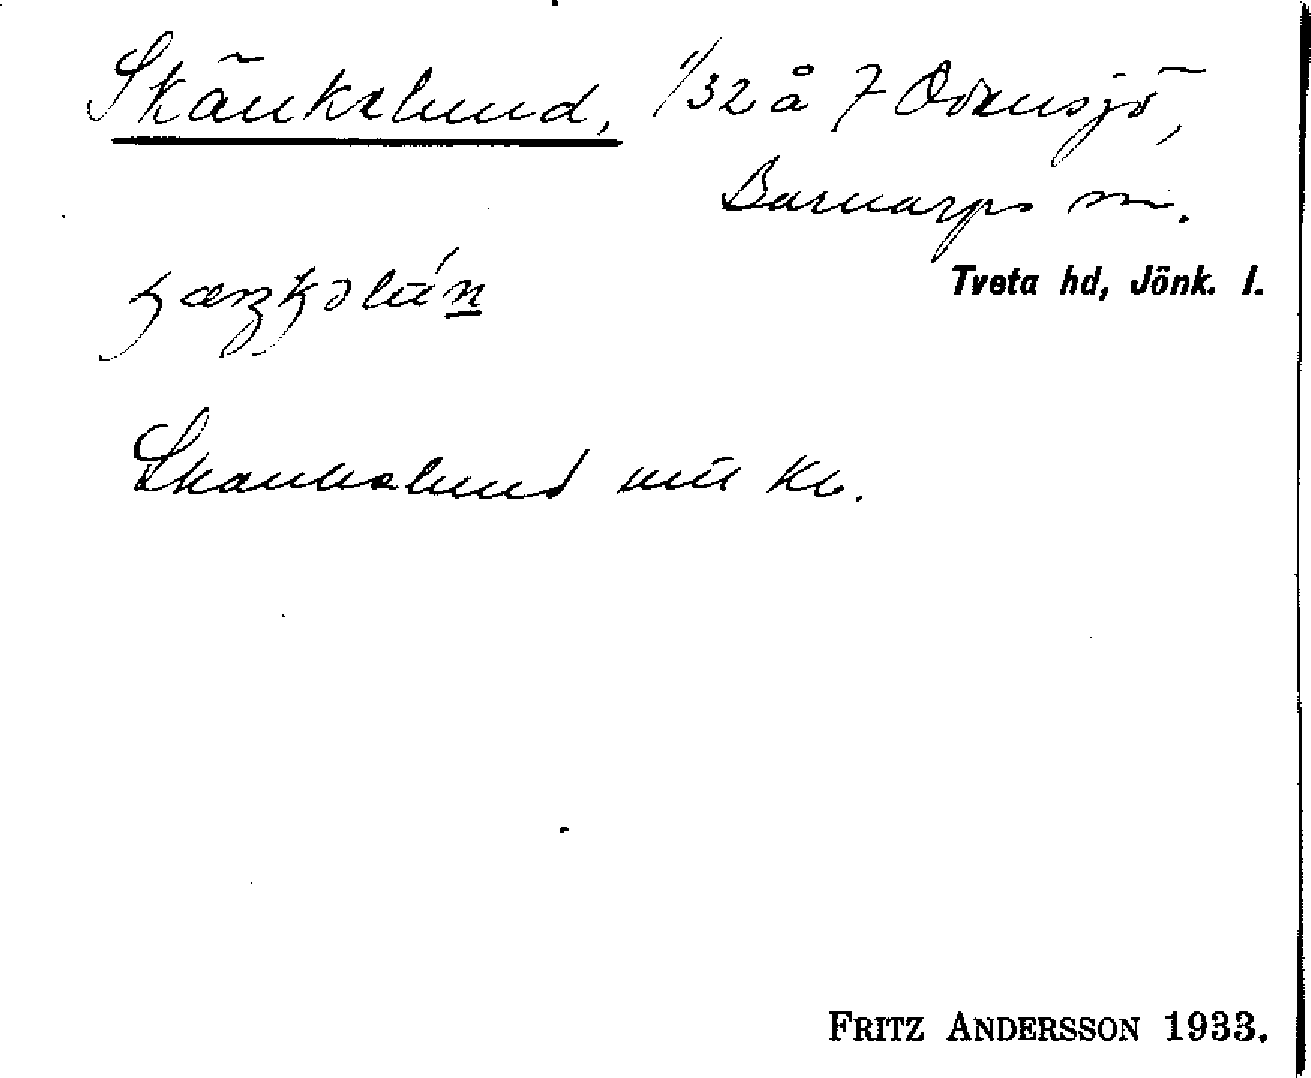 Skänkslund, 1/32 å 7 Odensjö,
Barnarps sn.
Tveta hd, Jönk. l.
Skänkslund
FRITZ ANDERSSON 1933.